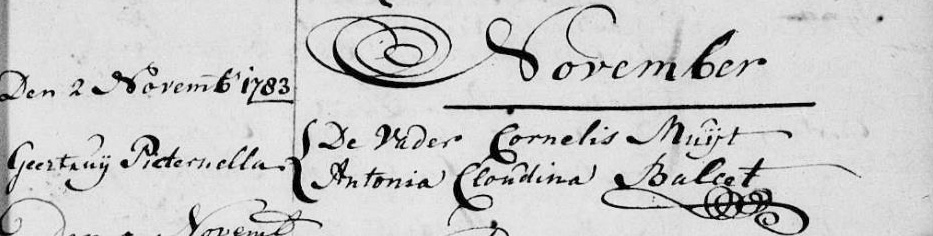 November
Den 2 Novemb 1783
De Vader Cornelis Muijt
Geertruij Pieternella
Antonia Cloudina Balcet
Novemb